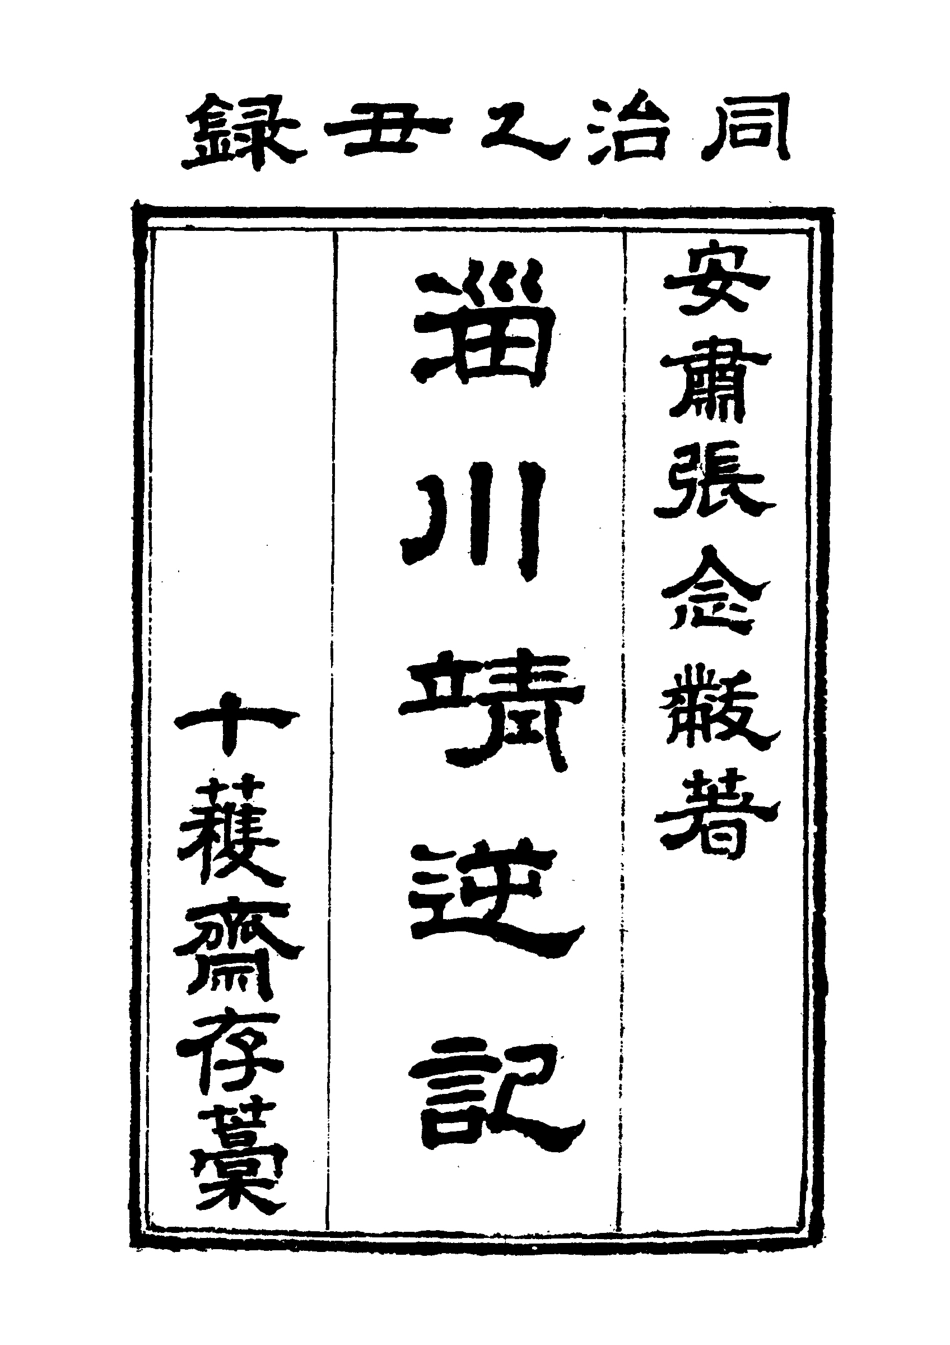 同治乙丑錄
安肅張念黻著
淄川靖逆記
十穫齋存藁